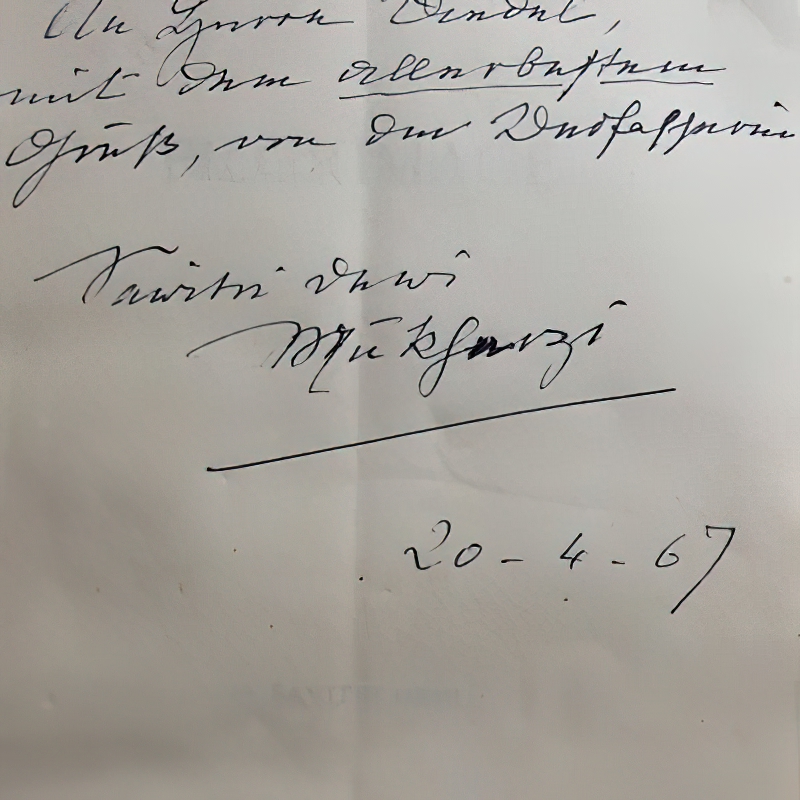 An Herrn Dindel,
mit dem allerbesten
Gruß, von der Verfasserin
Sawitri Dewi
Mukherji
20-4-67